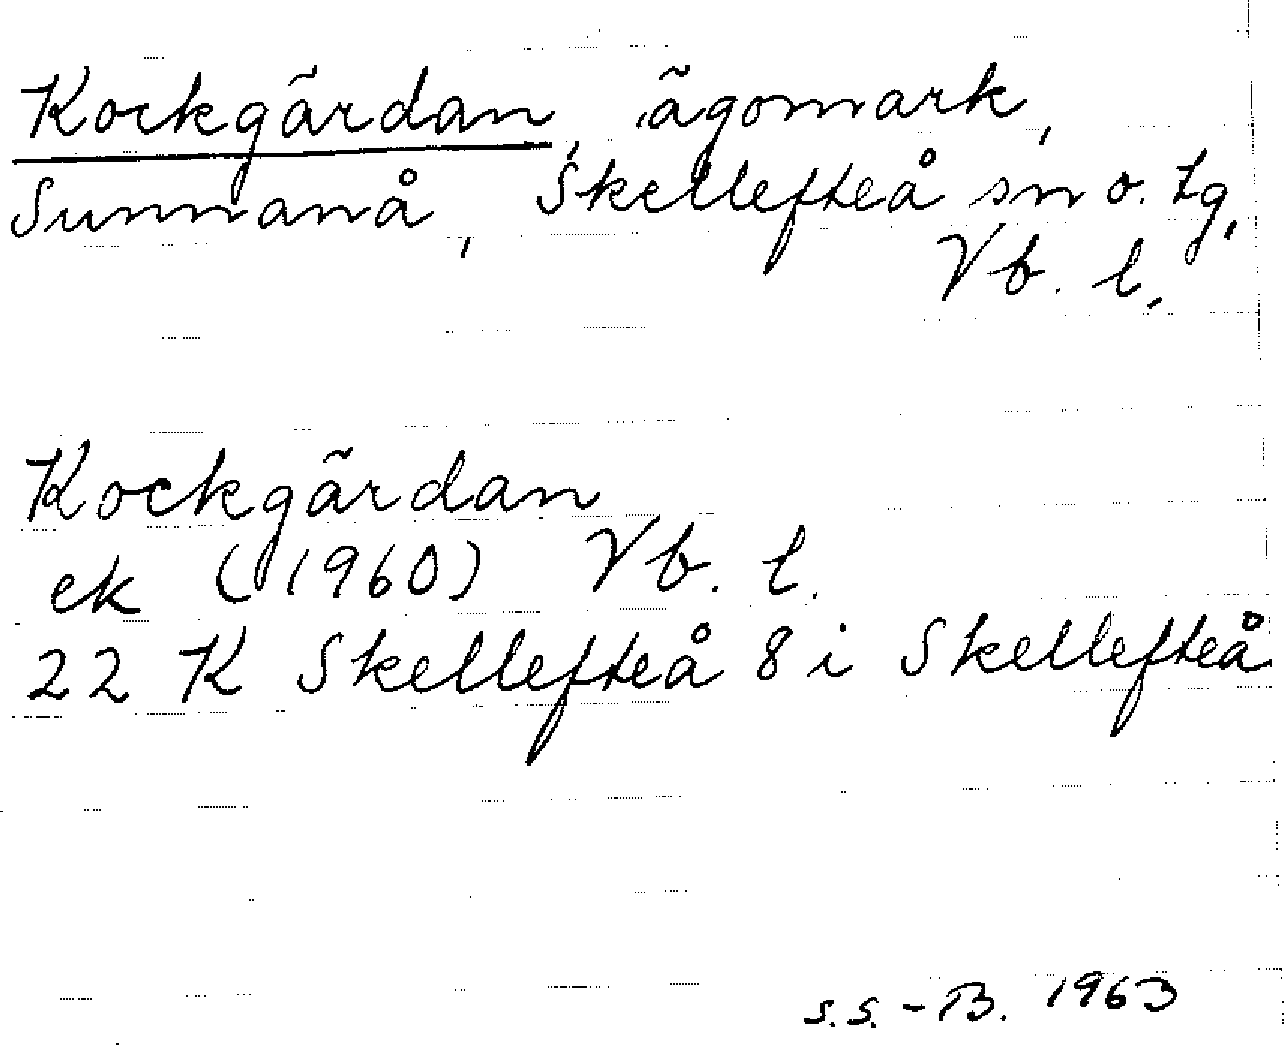 Kockgärdan, ägomark,
Sunnanå, Skellefteå sn o. tg,
Vb. l.
Kockgärdan
ek (1960) Vb. l.
22 K Skellefteå 8 i Skellefteå
S.S.-B. 1963